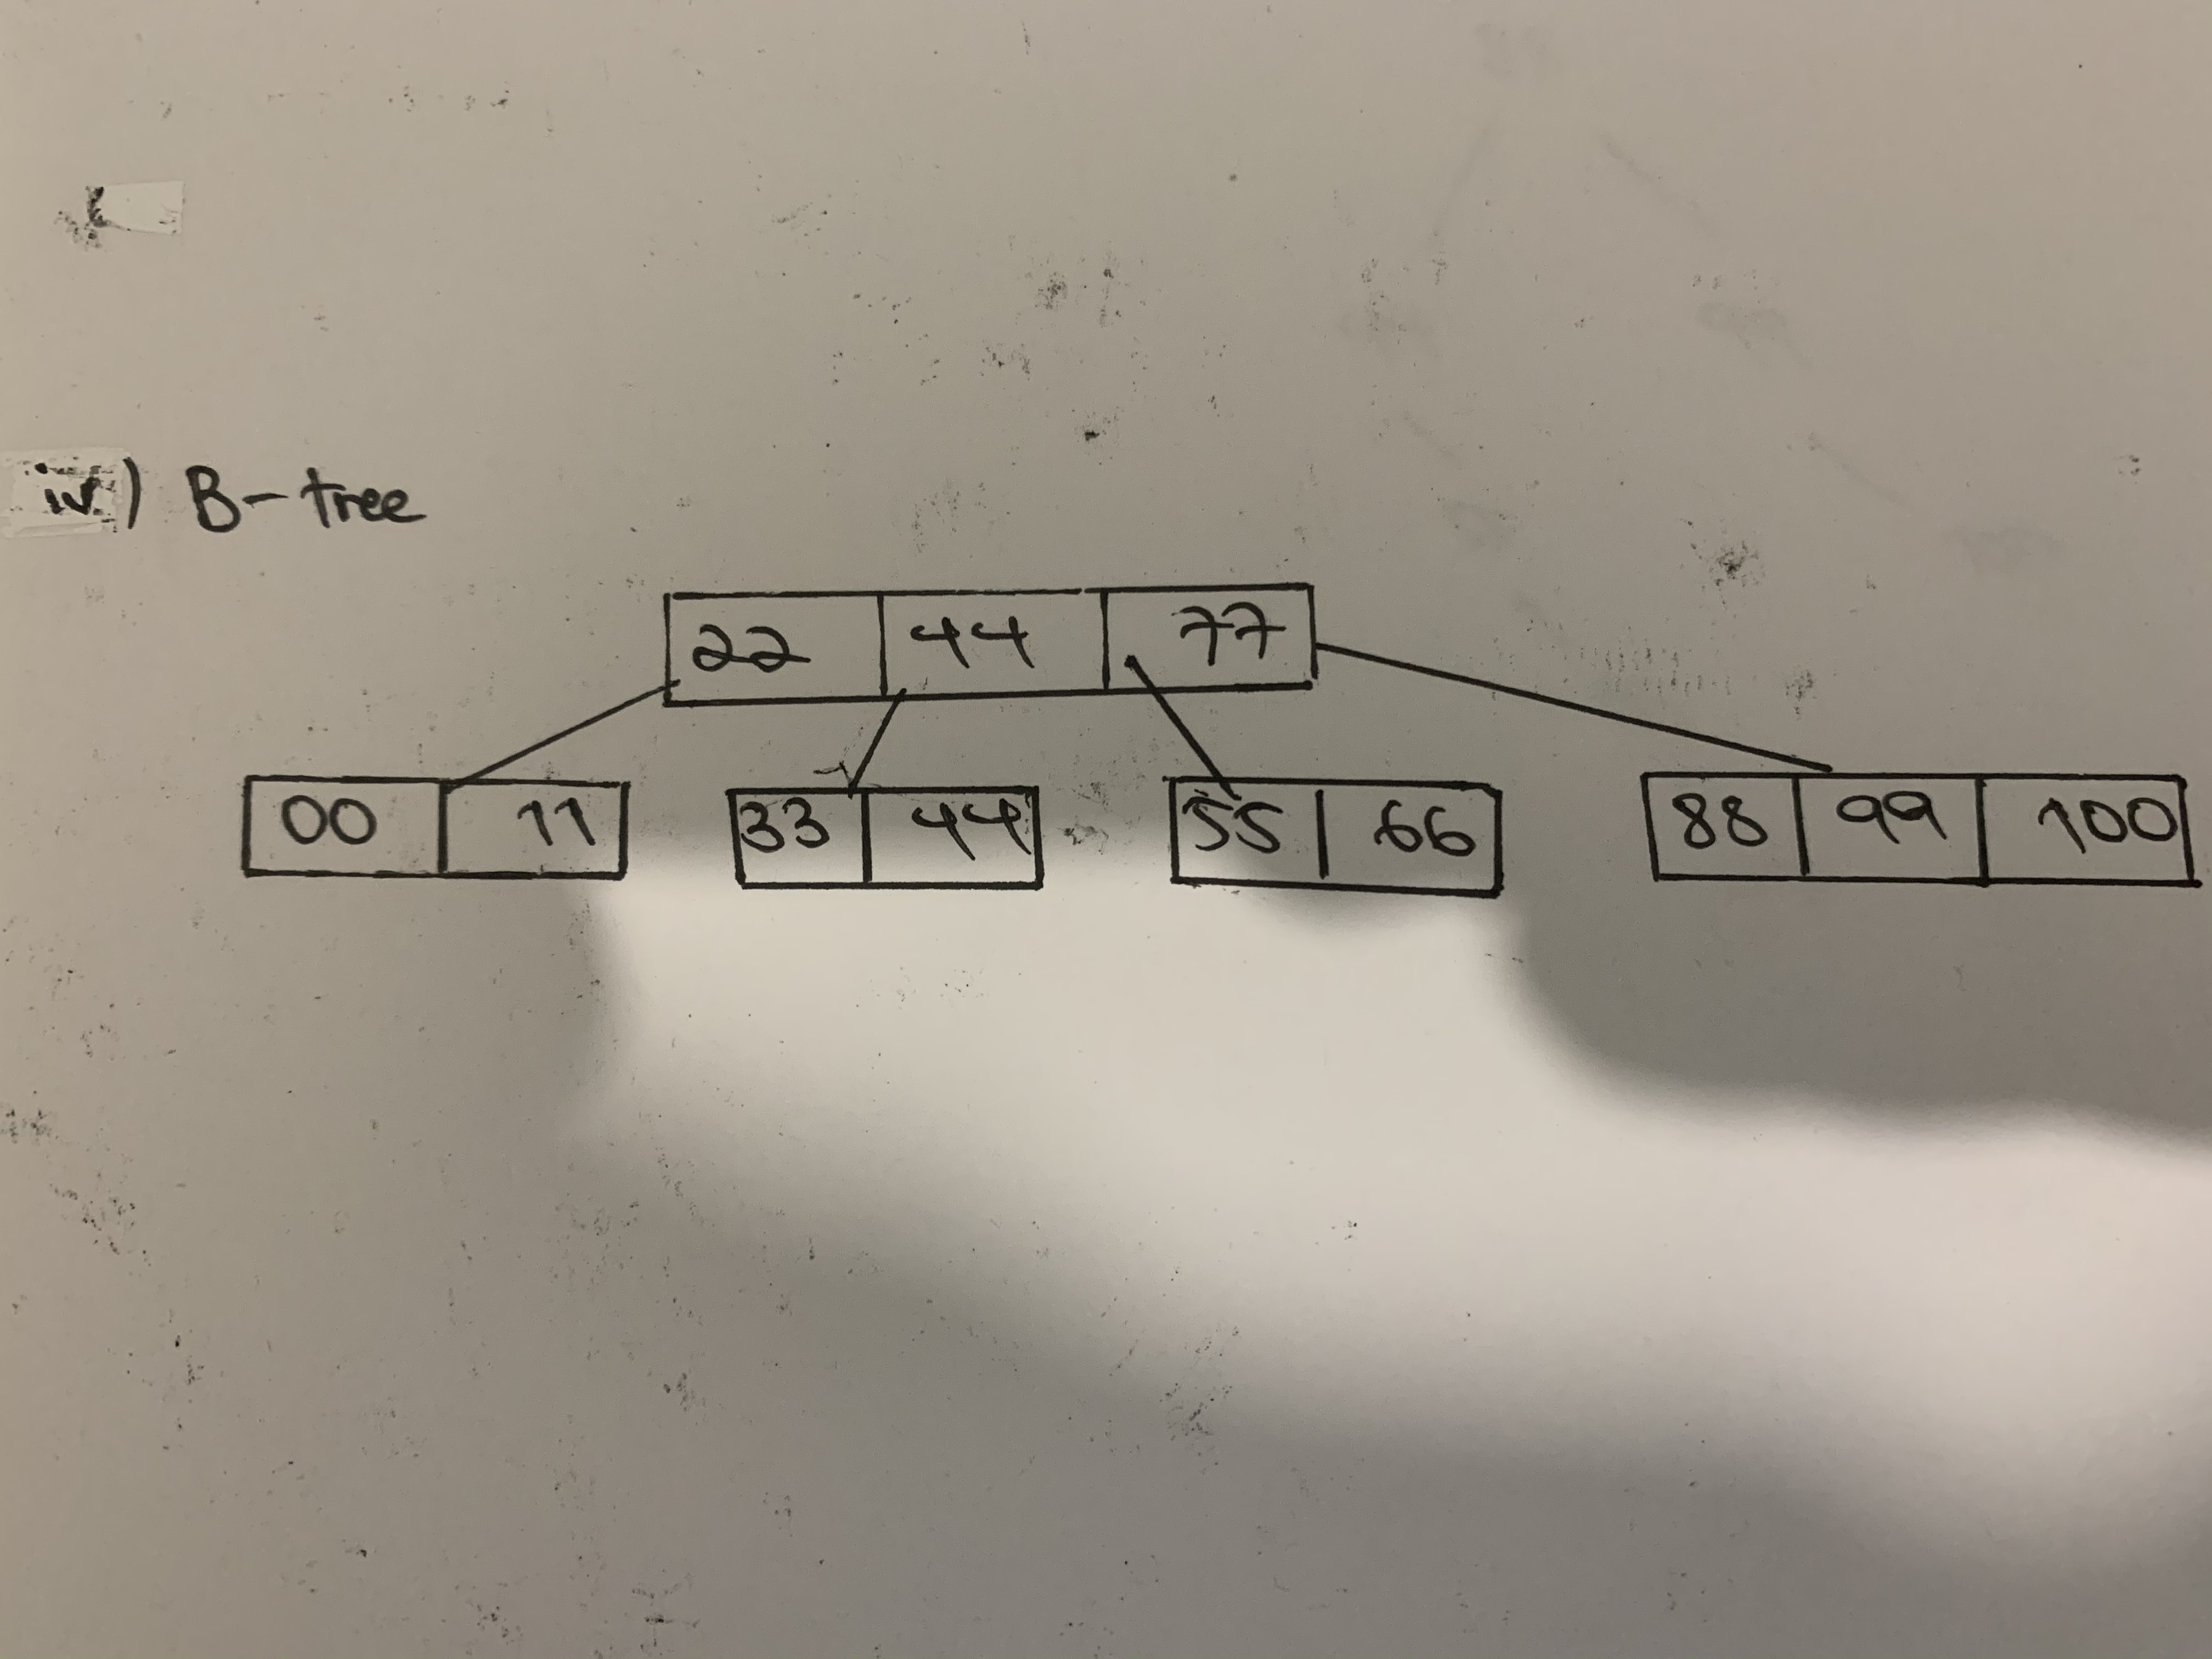 iv.) B-tree
22 44 77
00 11 33 44 55 66 88 99 100